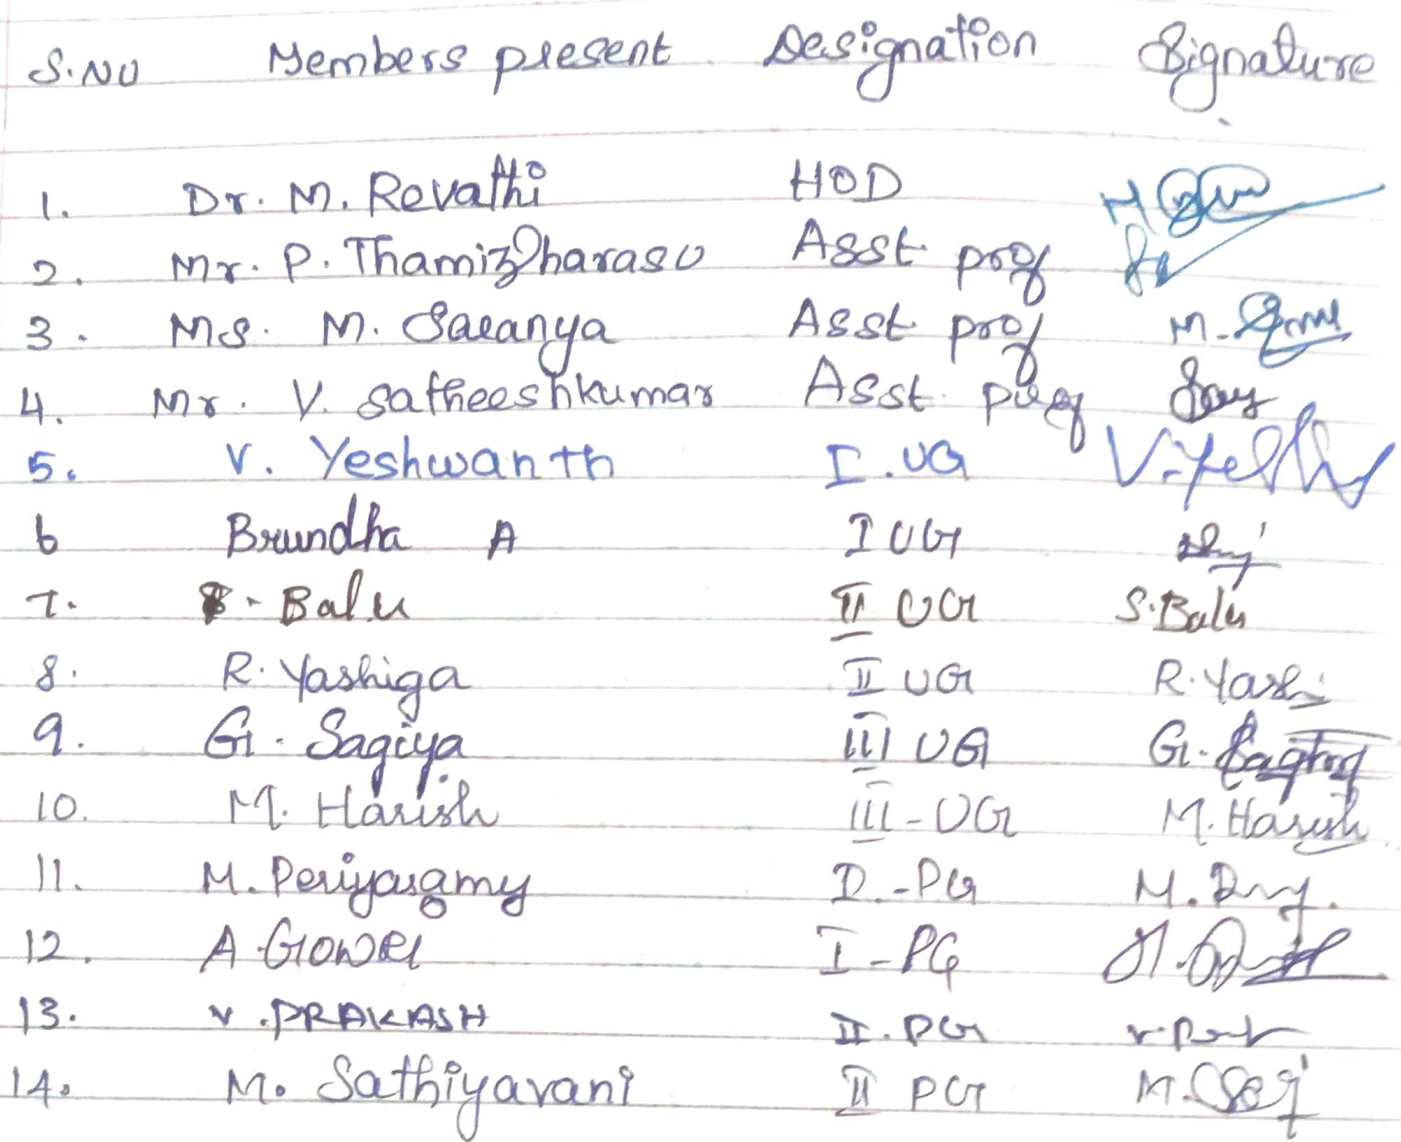 S.NO Members present Designation Signature
1. Dr. M. Revathi HOD
2. Mr. P. Thamizharasu Asst prof
3. Ms. M. Saranya Asst prof M.
4. Mr. V. Satheeshkumar Asst prof
5. V. Yeshwanth I. UG V.
6 Brundha A I UG
7. S. Balu II UG S. Balu
8. R. Yashiga II UG R. Yashi
9. G. Sagiya III UG G.
10. M. Harish III - UG M. Harish
11. M. Periyasamy I - PG M.
12. A. Gowri I - PG
13. V. PRAKASH II. PG
14. M. Sathiyavani II PG M.